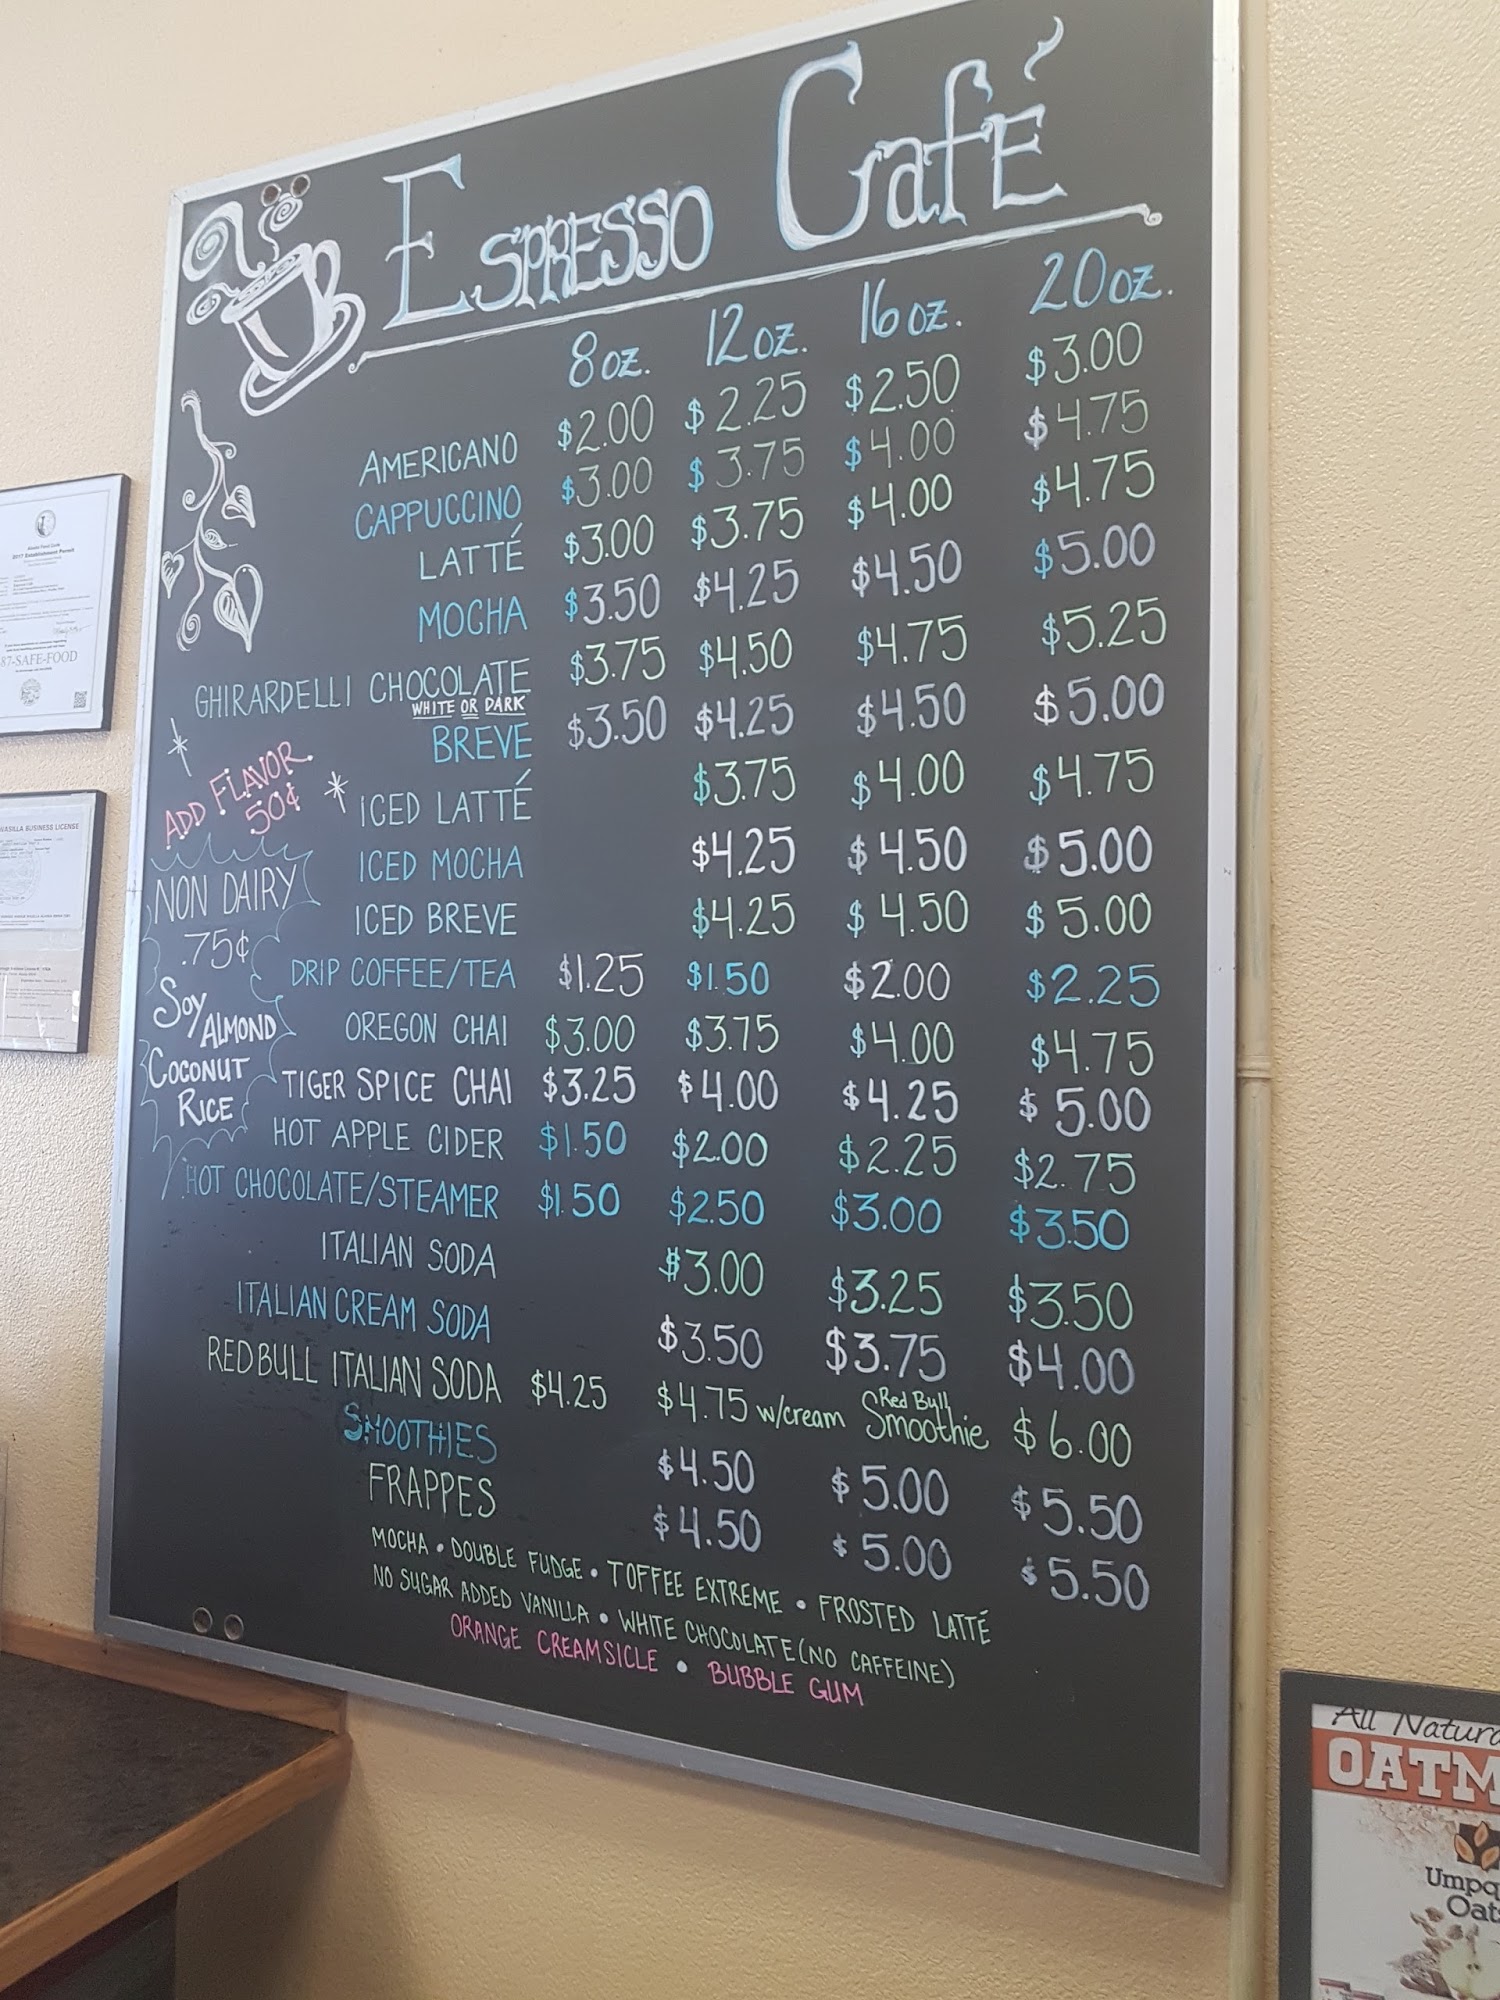 Espresso Café
8 oz. 12 oz. 16 oz. 20 oz.
AMERICANO $2.00 $2.25 $2.50 $3.00
CAPPUCCINO $3.00 $3.75 $4.00 $4.75
LATTÉ $3.00 $3.75 $4.00 $4.75
MOCHA $3.50 $4.25 $4.50 $5.00
GHIRARDELLI CHOCOLATE $3.75 $4.50 $4.75 $5.25
WHITE OR DARK
BREVE $3.50 $4.25 $4.50 $5.00
ICED LATTÉ $3.75 $4.00 $4.75
ICED MOCHA $4.25 $4.50 $5.00
ICED BREVE $4.25 $4.50 $5.00
DRIP COFFEE/TEA $1.25 $1.50 $2.00 $2.25
OREGON CHAI $3.00 $3.75 $4.00 $4.75
TIGER SPICE CHAI $3.25 $4.00 $4.25 $5.00
HOT APPLE CIDER $1.50 $2.00 $2.25 $2.75
HOT CHOCOLATE/STEAMER $1.50 $2.50 $3.00 $3.50
ITALIAN SODA $3.00 $3.25 $3.50
ITALIAN CREAM SODA $3.50 $3.75 $4.00
RED BULL ITALIAN SODA $4.25 $4.75 w/cream Red Bull Smoothie $6.00
SMOOTHIES $4.50 $5.00 $5.50
FRAPPES $4.50 $5.00 $5.50
MOCHA • DOUBLE FUDGE • TOFFEE EXTREME • FROSTED LATTÉ
NO SUGAR ADDED VANILLA • WHITE CHOCOLATE (NO CAFFEINE)
ORANGE CREAMSICLE • BUBBLE GUM
ADD FLAVOR
50¢
NON DAIRY
.75¢
SOY
ALMOND
COCONUT
RICE
2017 Establishment Permit
87-SAFE-FOOD
WASILLA BUSINESS LICENSE
All Natura
OATM
Umpq
Oats